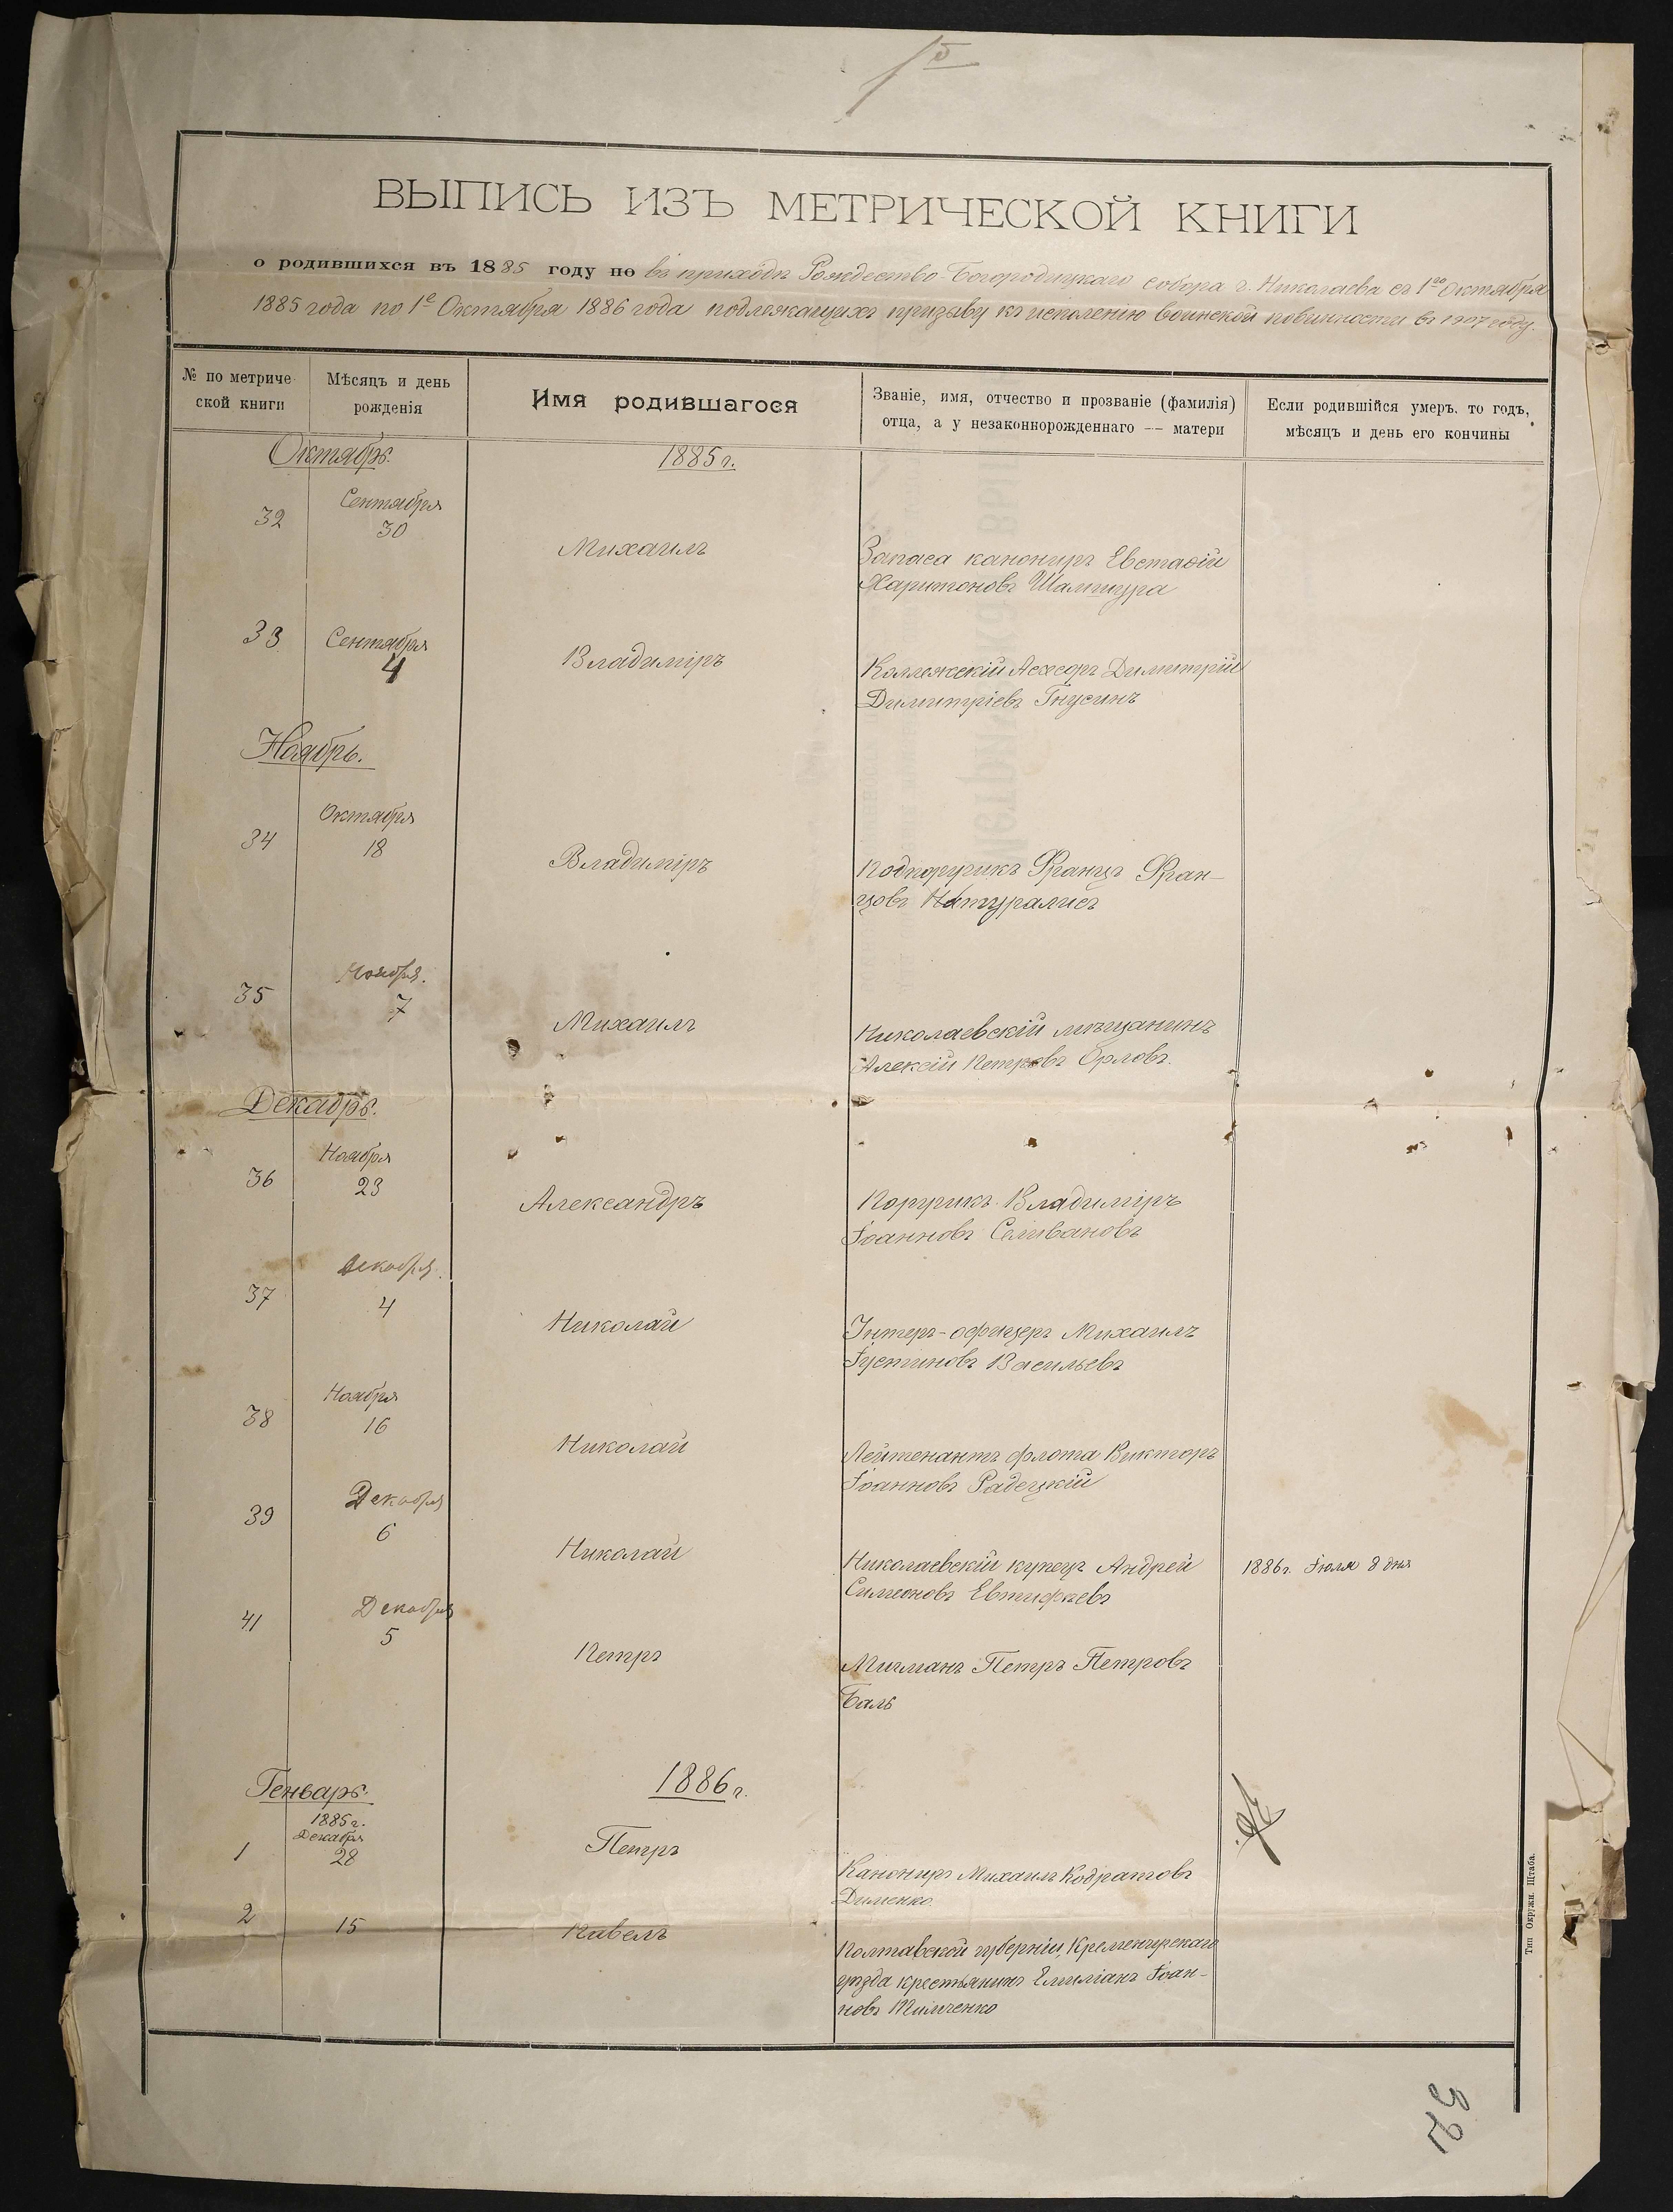 ВЫПИСЬ ИЗЪ МЕТРИЧЕСКОЙ КНИГИ
о родившихся въ 1885 году по въ приходѣ Рождество-Богородицкаго собора г. Николаева съ 1го Октября
1885 года по 1е Октября 1886 года подлежащихъ призыву къ исполенію воинской повинности въ 1907 году.
№ по метриче
ской книги
Мѣсяцъ и день
рожденія
Имя родившагося
Званіе, имя, отчество и прозваніе (фамилія)
отца, а у незаконнорожденнаго — матери
Если родившійся умеръ. то годъ,
мѣсяцъ и день его кончины
Октябрь.
1885 г.
32
Сентября
30
Михаилъ
Запаса канониръ Евстаѳій
Харитоновъ
33
Сентября
4
Владиміръ
Коллежскій Ассесоръ Димитрій
Димитріевъ Гнусинъ
Ноябрь.
34
Октября
18
Владиміръ
Подпоручикъ Францъ Фран-
цовъ Натуралисъ
35
Ноября.
7
Михаилъ
Николаевскій мѣщанинъ
Алексій Петровъ Орловъ.
Декабрь.
36
Ноября
23
Александръ
Поручикъ Владиміръ
Іоанновъ Селивановъ
37
Декабря.
4
Николай
Унтеръ-офицеръ Михаилъ
Іустиновъ Васильевъ
38
Ноября
16
Николай
Лейтенантъ флота Викторъ
Іоанновъ Радецкій
39
Декабря
6
Николай
Николаевскій купецъ Андрей
Симеоновъ Евтифѣевъ
1886 г. Іюля 8 дня
41
Декабря
5
Петръ
Мичманъ Петръ Петровъ
Баль
Генварь.
1886 г.
1
1885 г.
Декабря
28
Петръ
Канониръ Михаилъ Кодратовъ
Дименко.
2
15
Павелъ
Полтавской губерніи, Кременчугскаго
уѣзда крестьянинъ Емиліанъ Іоан-
новъ Тимченко
Тип Окружн. Штаба.
32